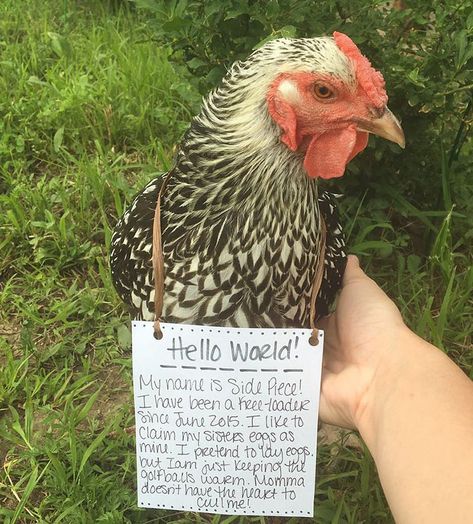 Hello World!
My name is Side Piece!
I have been a free-loader
since June 2015. I like to
claim my sisters eggs as
mine. I pretend to lay eggs,
but I am just keeping the
golfballs warm. Momma
doesn't have the heart to
cull me!